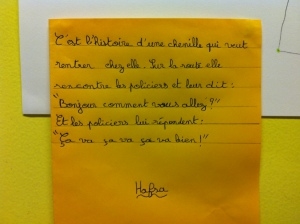 C'est l'histoire d'une chenille qui veut
rentrer chez elle. Sur la route elle
rencontre les policiers et leur dit :
"Bonjour comment vous allez ?"
Et les policiers lui répondent :
"Ça va ça va ça va bien !"
Hafsa